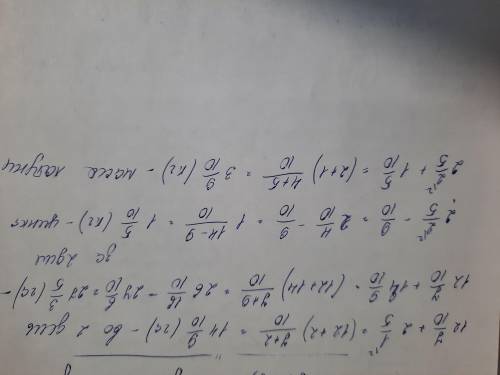 12 7/10 + 2 1/5 = (12+2) 7+2/10 = 14 9/10 (га) - во 2 день
12 7/10 + 14 9/10 = (12+14) 7+9/10 = 26 16/10 = 27 6/10 = 27 3/5 (га) -
за 2 дня
2 2/5 - 9/10 = 2 4/10 - 9/10 = 1 14-9/10 = 1 5/10 (кг) -
2 2/5 + 1 5/10 = (2+1) 4+5/10 = 3 9/10 (кг) - масса